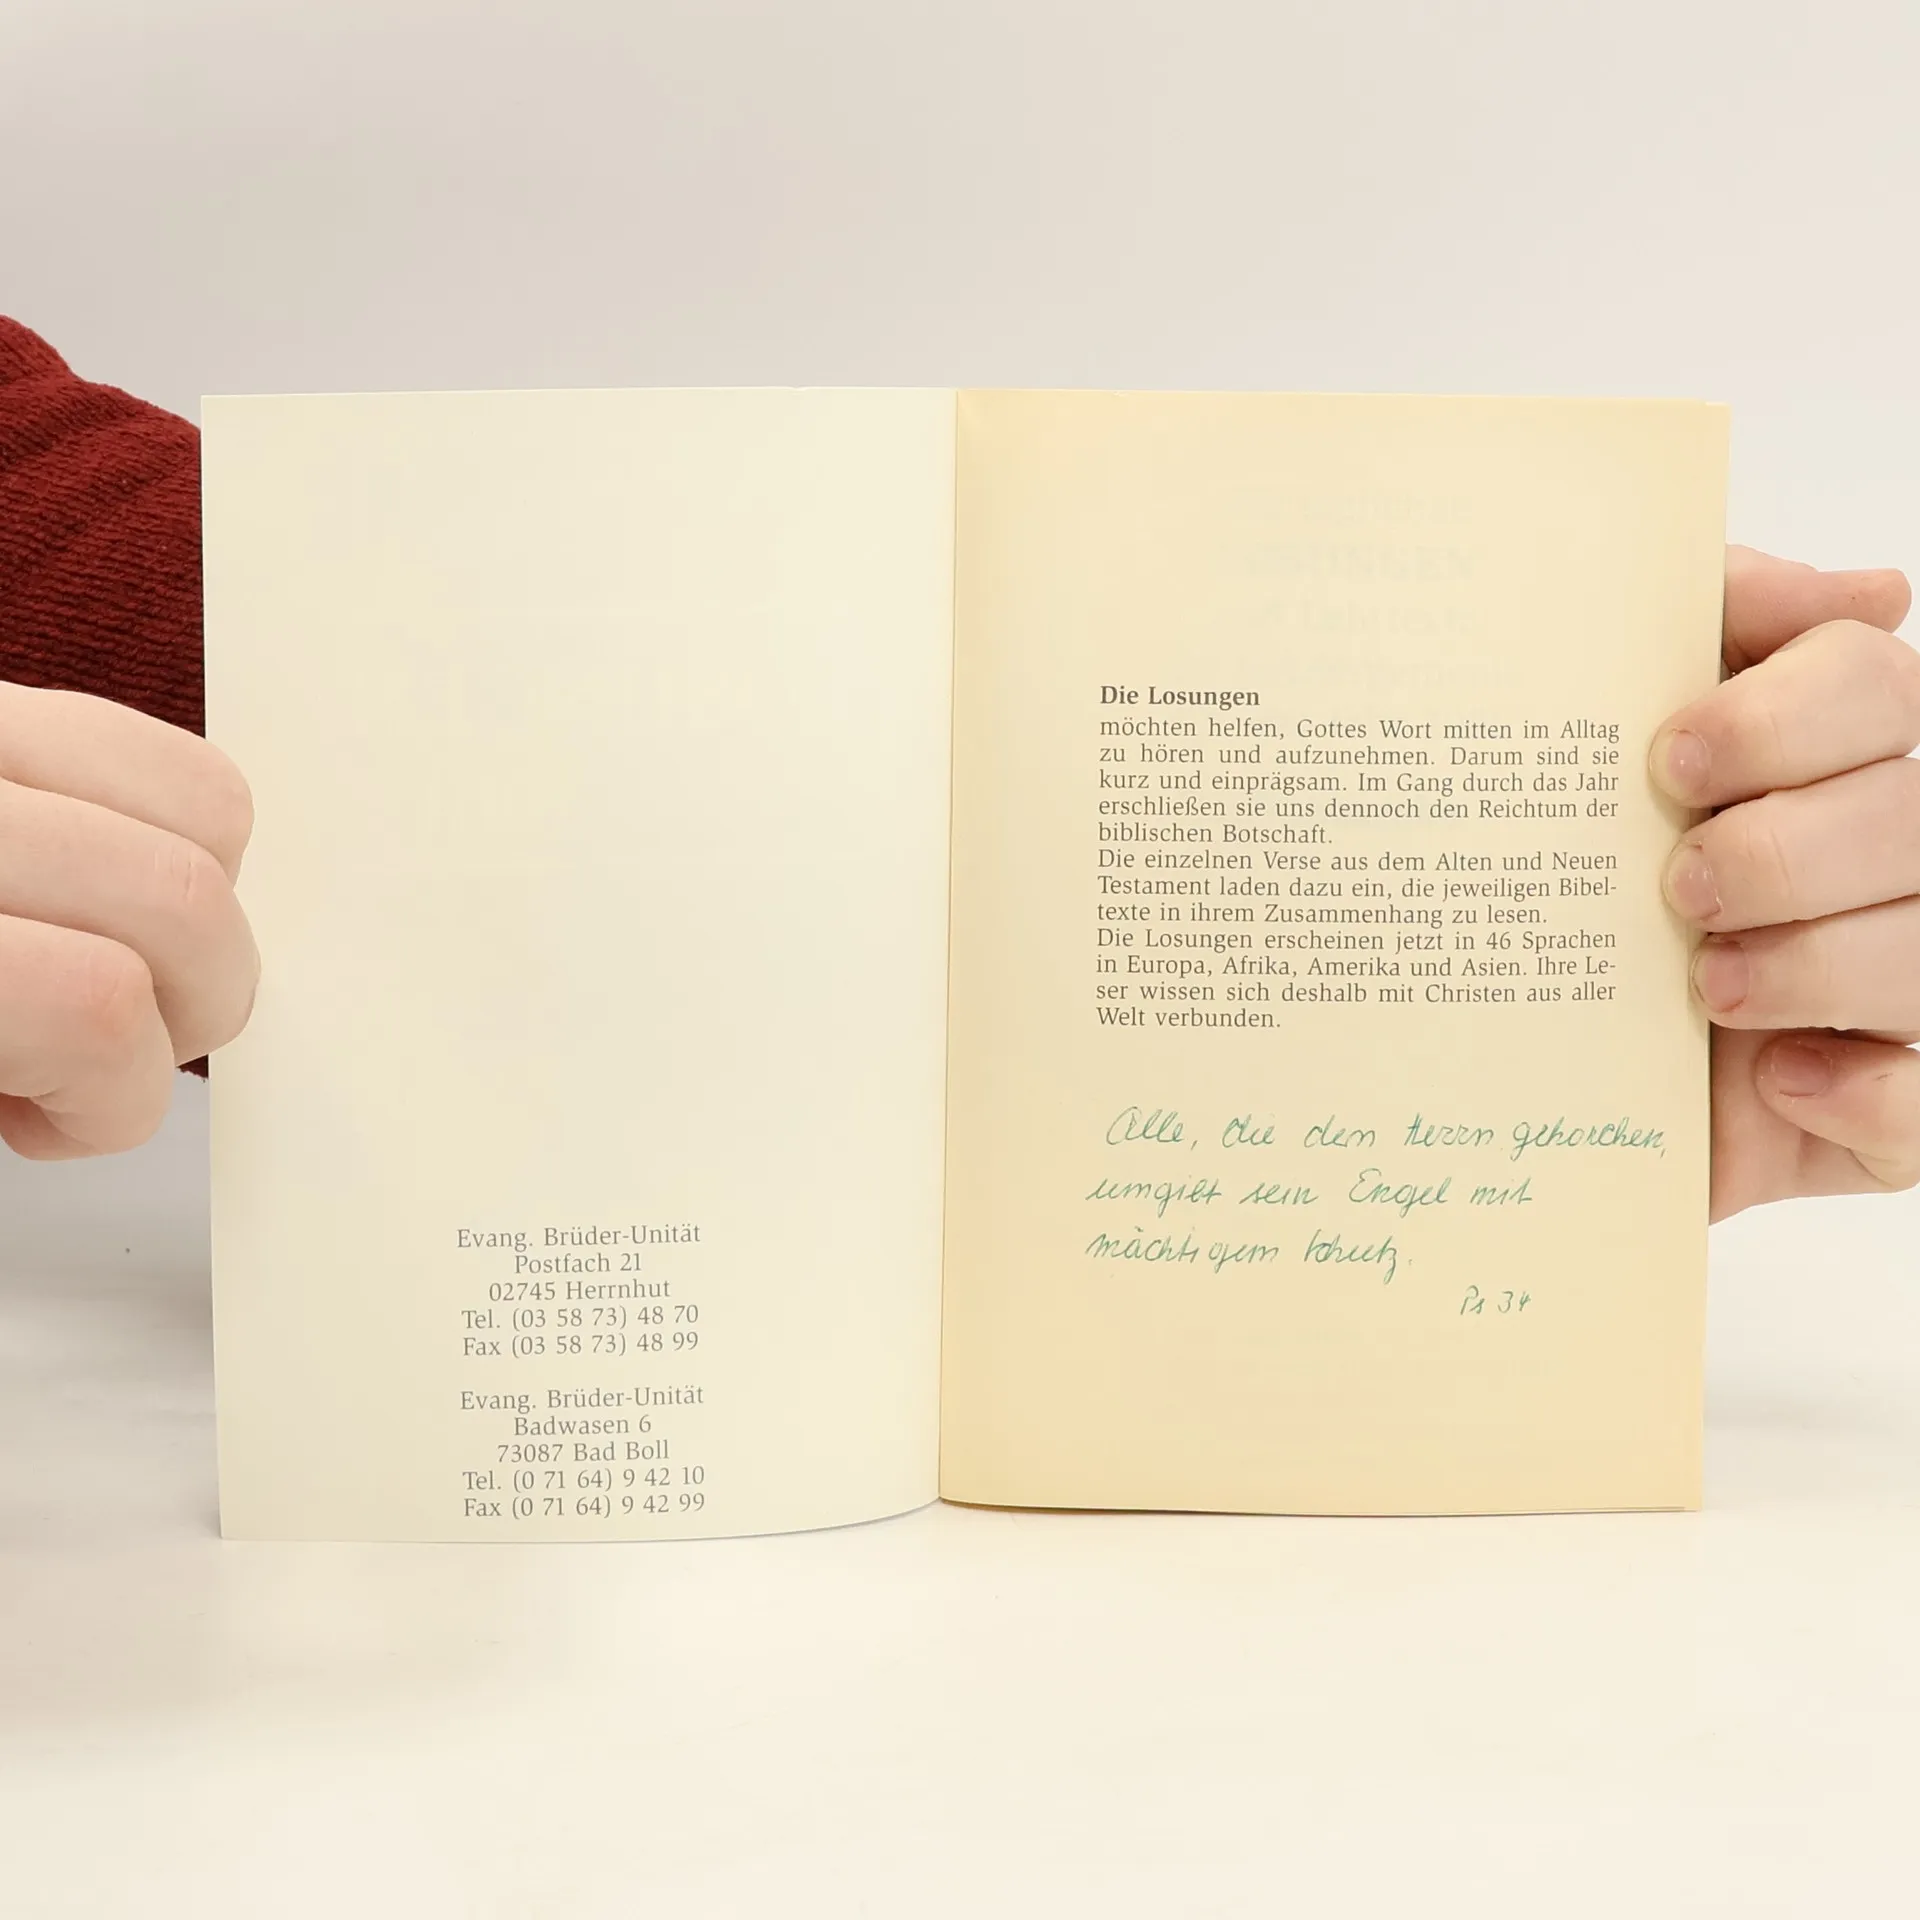 Evang. Brüder-Unität
Postfach 21
02745 Herrnhut
Tel. (03 58 73) 48 70
Fax (03 58 73) 48 99
Evang. Brüder-Unität
Badwasen 6
73087 Bad Boll
Tel. (0 71 64) 9 42 10
Fax (0 71 64) 9 42 99
Die Losungen
möchten helfen, Gottes Wort mitten im Alltag
zu hören und aufzunehmen. Darum sind sie
kurz und einprägsam. Im Gang durch das Jahr
erschließen sie uns dennoch den Reichtum der
biblischen Botschaft.
Die einzelnen Verse aus dem Alten und Neuen
Testament laden dazu ein, die jeweiligen Bibel-
texte in ihrem Zusammenhang zu lesen.
Die Losungen erscheinen jetzt in 46 Sprachen
in Europa, Afrika, Amerika und Asien. Ihre Le-
ser wissen sich deshalb mit Christen aus aller
Welt verbunden.
Alle, die dem Herrn gehorchen,
umgibt sein Engel mit
mächtigem Schutz.
Ps 34